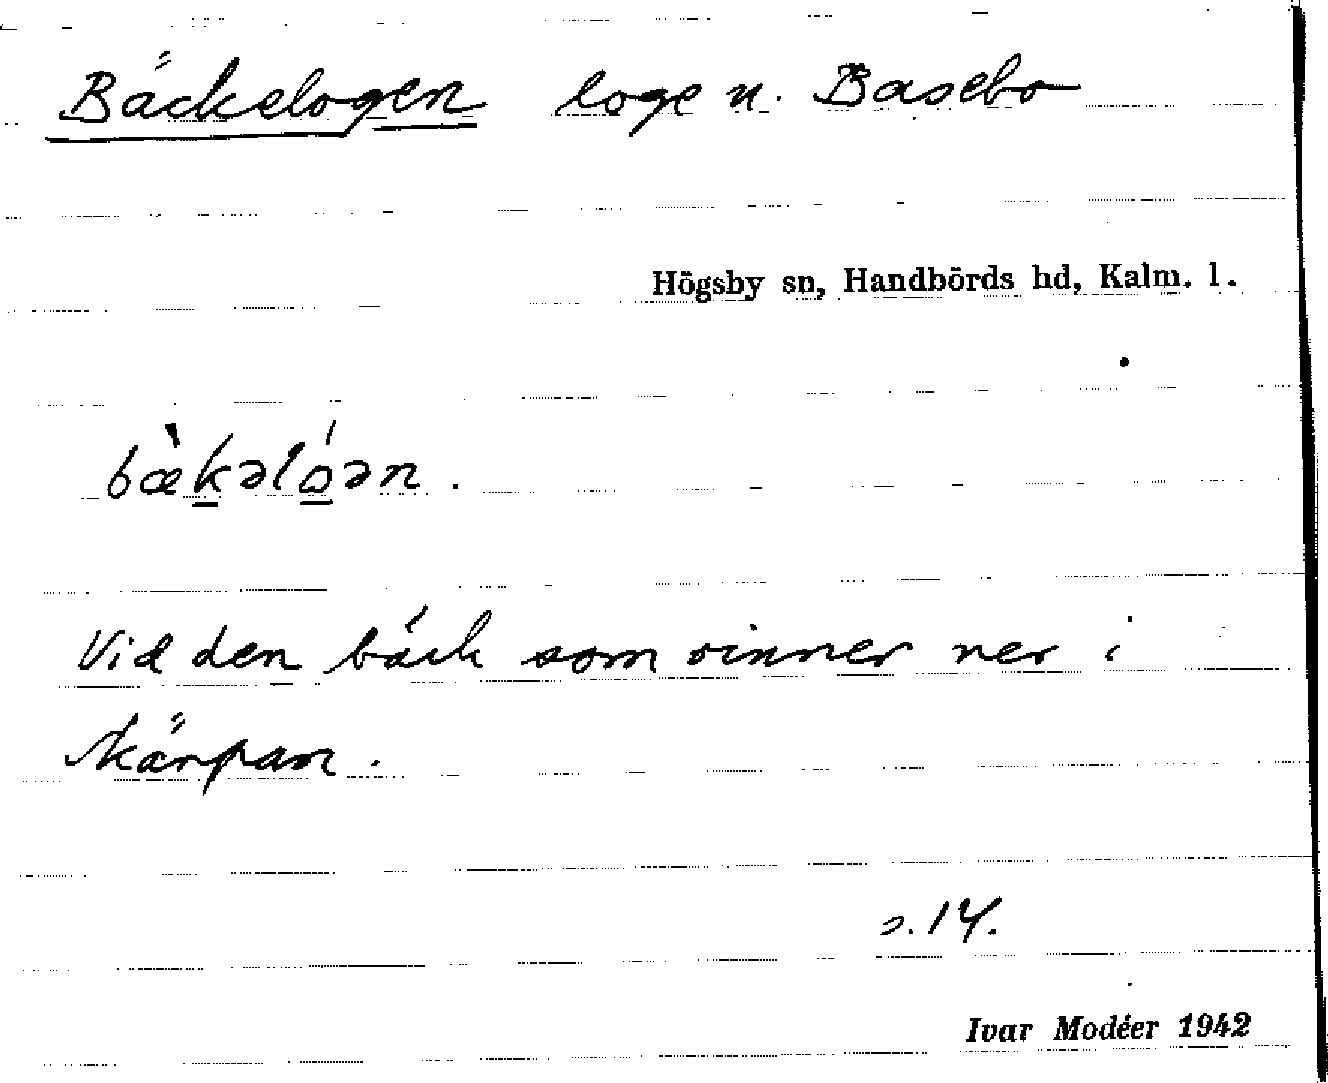 Bäckelogen loge n. Basebo
Högsby sn, Handbörds hd, Kalm. l.
bæ̀kəlóən.
Vid den bäck som rinner ner i
Kärpan.
s. 14.
Ivar Modéer 1942